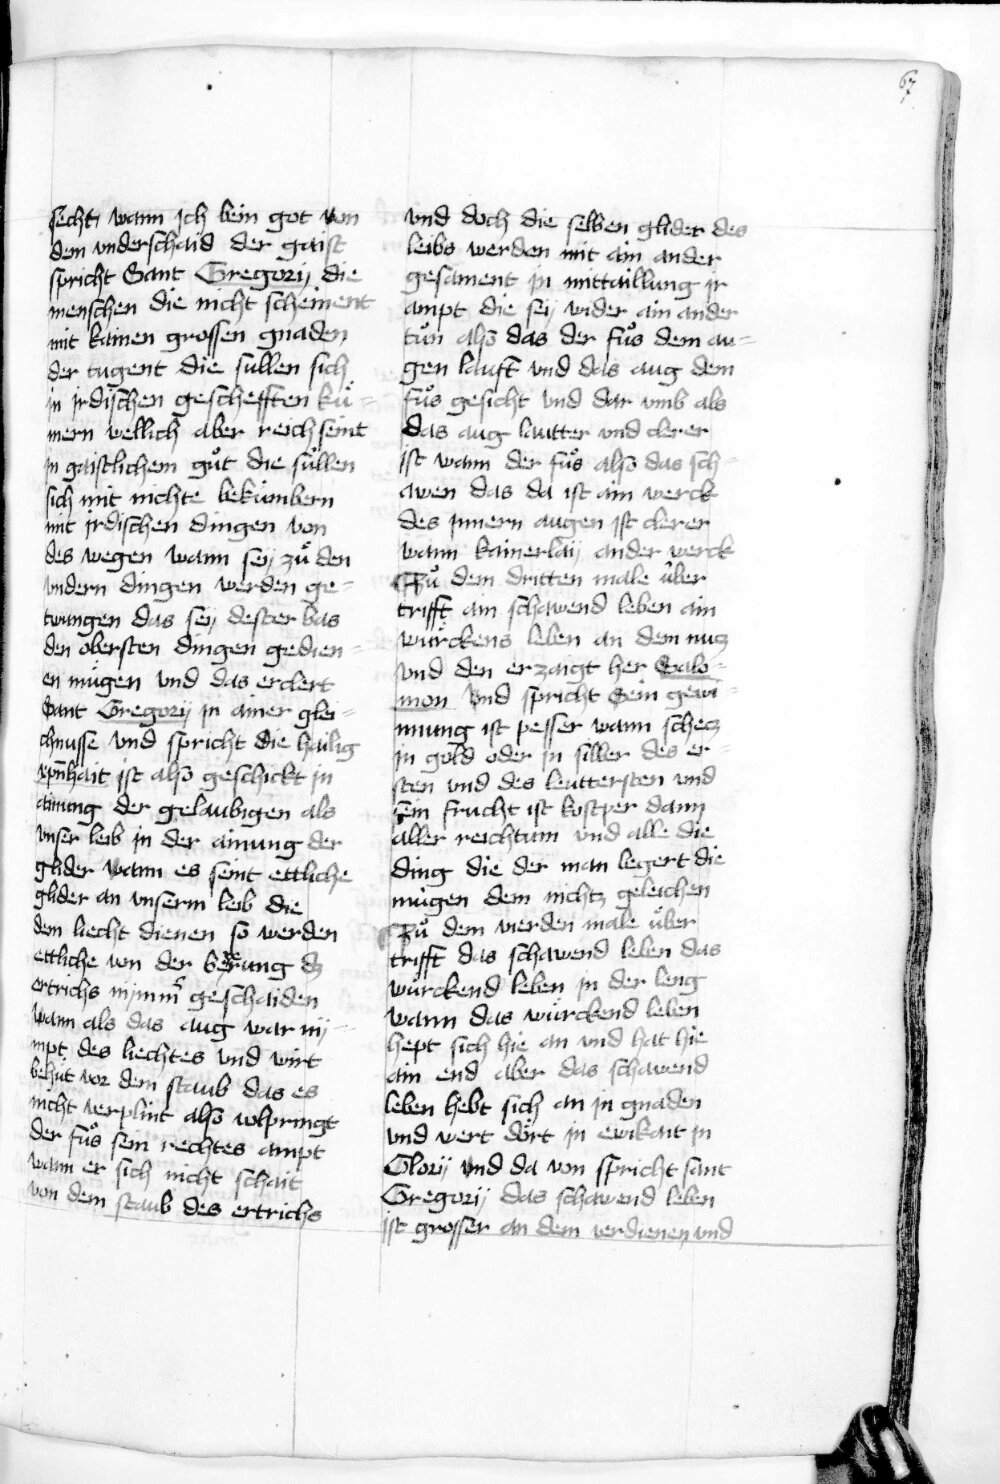 67
secht wann ich bein got von
dem vnderschaid der gaist
spricht Sant Gregorij die
menschen die nicht scheinent
mit kainen grossen gnaden
der tugent die sullen sich
in jrdischen geschefften kü=
mern wellich aber reich seint
in gaistlichem gůt die süllen
sich mit nichte bekümbern
mit irdischen dingen von
des wegen wann seij zů den
vndern dingen werden ge=
twungen das seij dester bas
den obersten dingen gedien=
en mügen vnd das erclert
Sant Gregorij in ainer glei=
chnusse vnd spricht die hailig
xpn̄hait ist also geschickt in
ainung der gelaubigen als
vnser leib in der ainung der
glider wann es seint ettliche
glider an vnserm leib die
dem liecht dienen so werden
ettliche von der dz
ertrichs nymm̄ geschaiden
wann als das aug war nij=
mpt des liechtes vnd wirt
behüt vor dem staub das es
nicht verplint also volpringt
der fůs sein rechtes ampt
wann er sich nicht schait
von dem staub des ertrichs
vnd doch die selben glider des
leibs werden mit ain ander
gesament in mittaillung ir
ampt die seij wider ain ander
tůn also das der fůs dem au=
gen lauft vnd das aug dem
fůs gesicht vnd dar vmb als
das aug lautter vnd clerer
ist wann der fůs also das sch=
awen das da ist ain werck
des jnnern augen ist clerer
wann kainerlaij ander werck
Zů dem dritten male über
trifft ain schawend leben ain
würckens leben an dem nutz
vnd den erzaigt her Salo=
mon vnd spricht Sein gewi=
nnung ist pesser wann schetz
in gold oder in silber des er=
sten vnd des leuttersten vnd
sein frucht ist kostper dann
aller reichtum vnd alle die
ding die der man begert die
mügen dem nichtz geleichen
Zů dem vierden male über
trifft das schawend leben das
würckend leben in der leng
wann das würckend leben
hept sich hie an vnd hat hie
ain end aber das schawend
leben hebt sich an in gnaden
vnd wert dört in ewikait in
Glorij vnd da von spricht sant
Gregorij das schawend leben
ist grosser an dem verdienen vnd